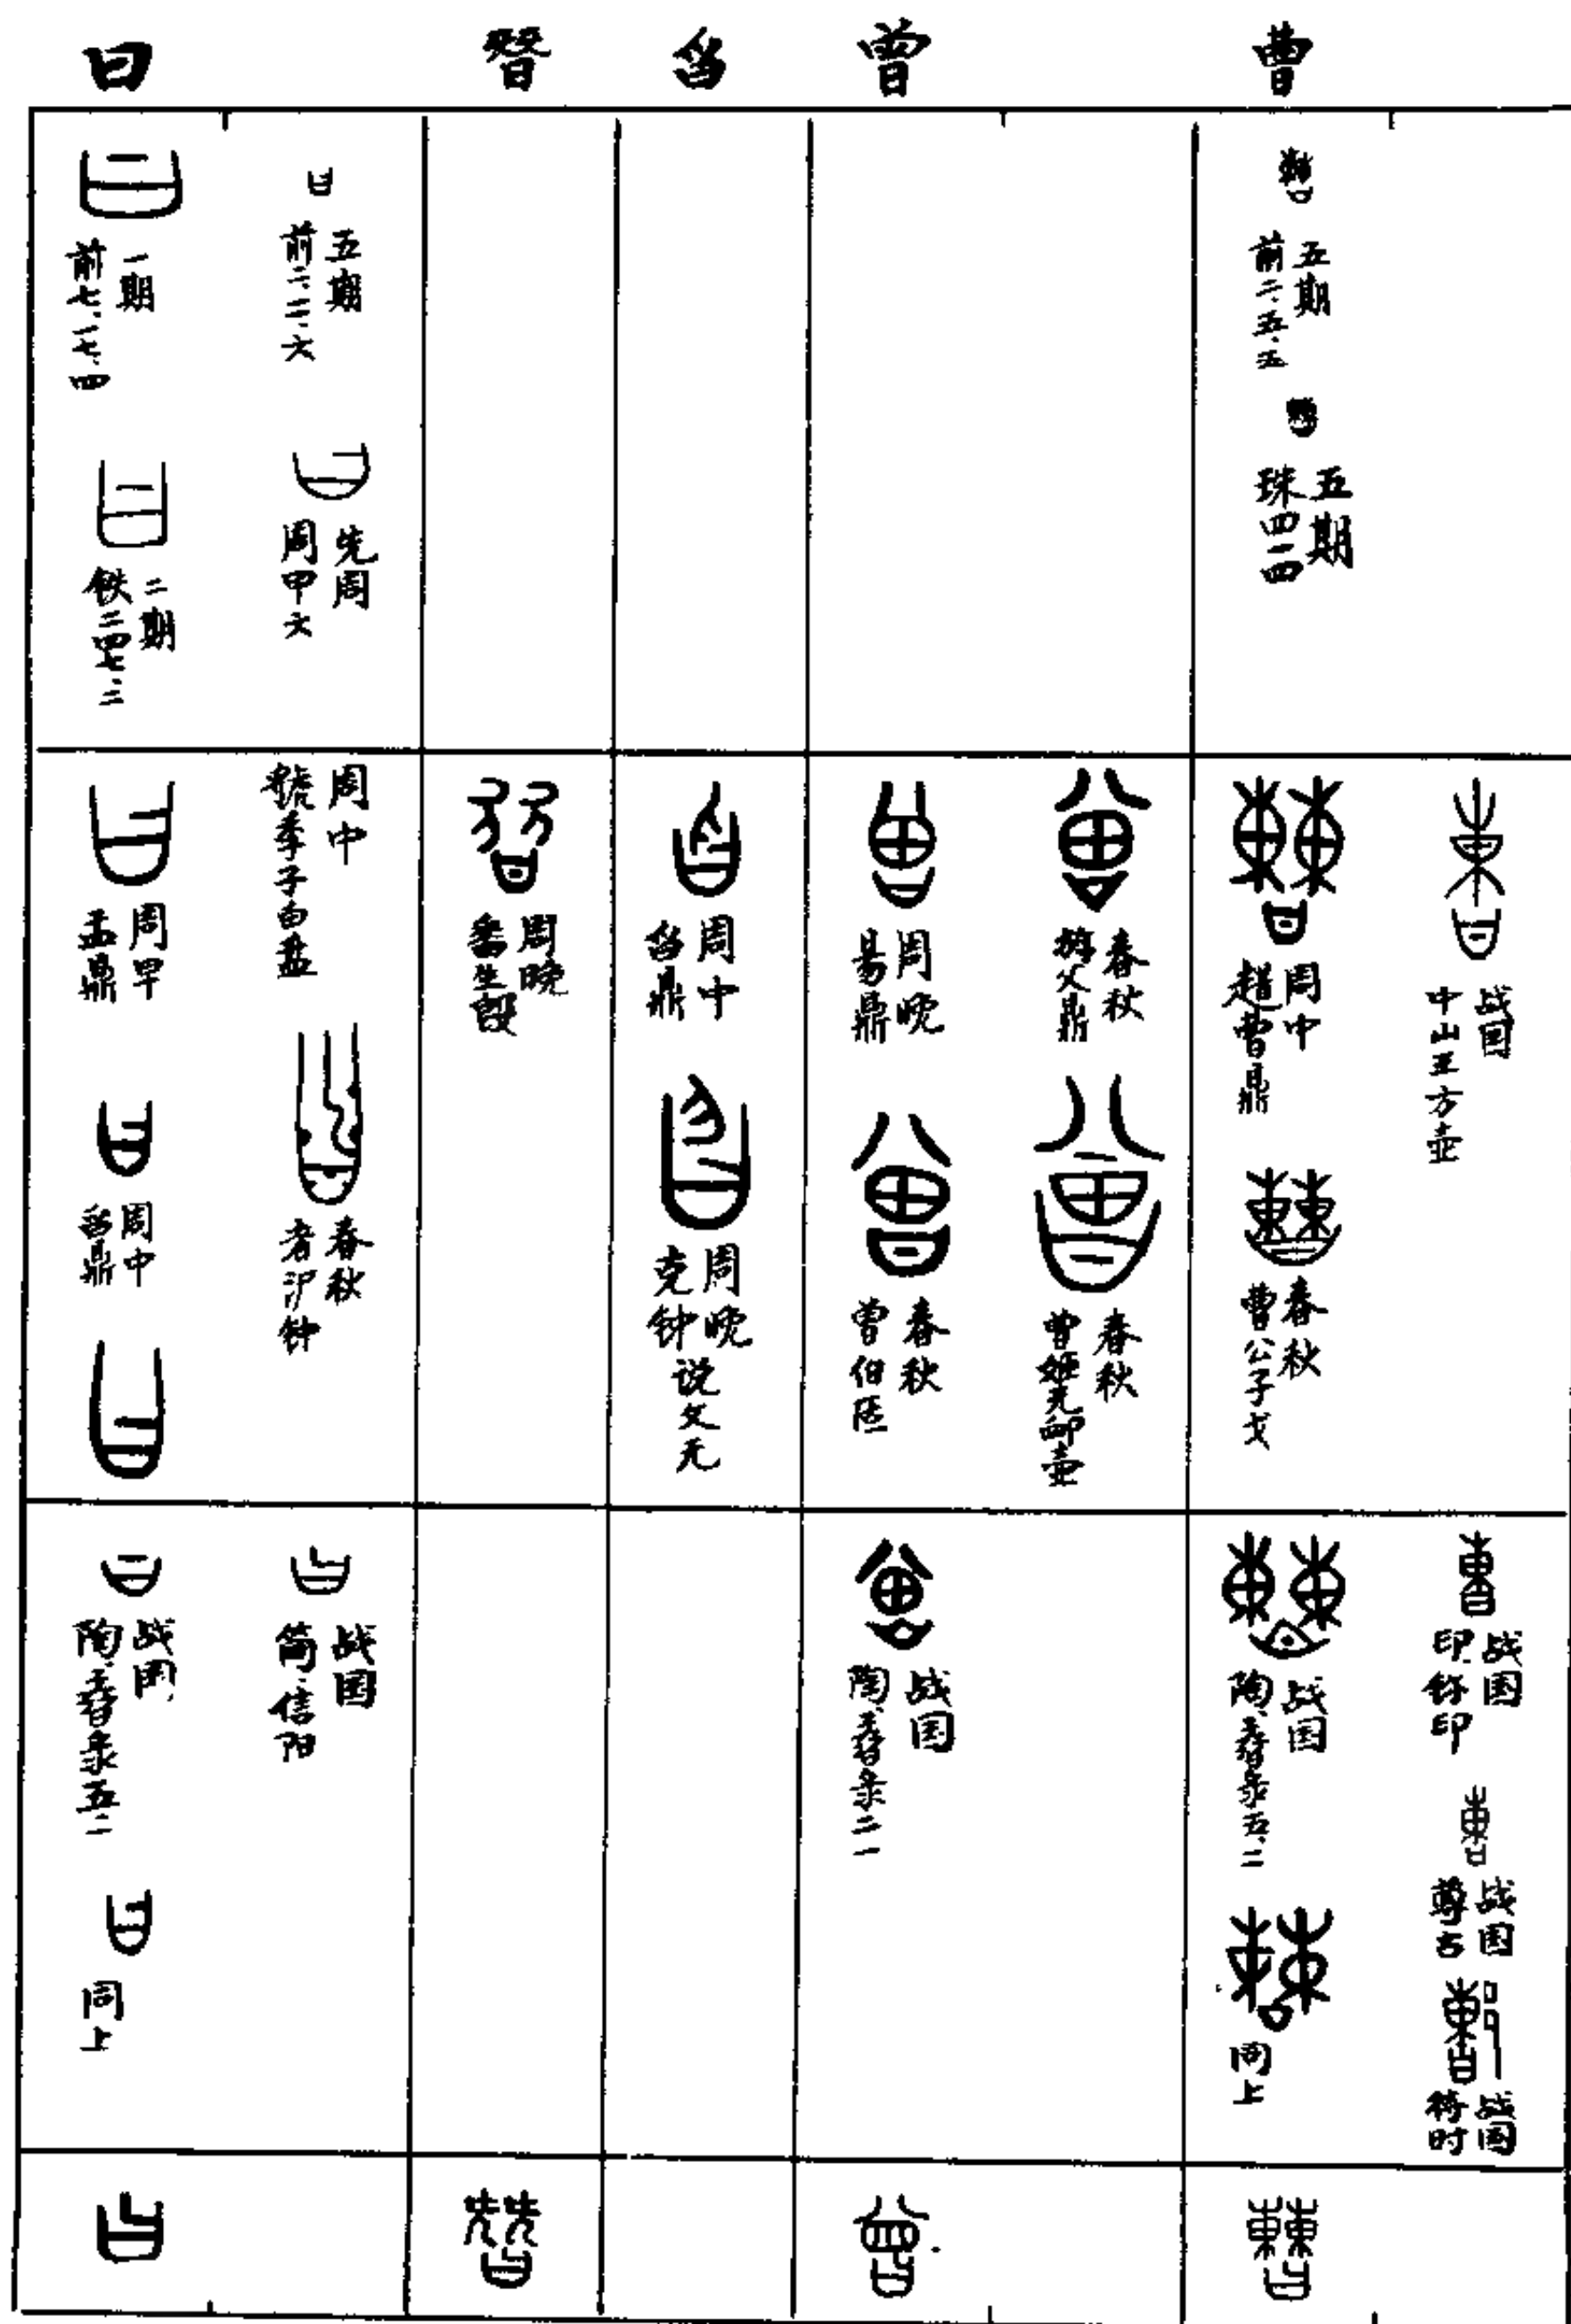 曰 朁 曶 曾 曹
一期
前七·一七·四
二期
铁二四七·二
五期
前二·二·六
先周
周甲文
五期
前二·五·五
五期
珠四二四
周早
盂鼎
周中
曶鼎
周中
虢季子白盘
春秋
者沪钟
周晚
番生𣪘
周中
曶鼎
周晚
克钟
说文无
周晚
易鼎
春秋
曾伯陭
春秋
父鼎
春秋
曾姬无卹壶
周中
趞曹鼎
春秋
曹公子戈
战国
中山王方壶
战国
陶·孴录五·二
同上
战国
简·信阳
战国
陶·孴录二·一
战国
陶·孴录五·二
同上
战国
印·鉨印
战国
尊古
战国
待时